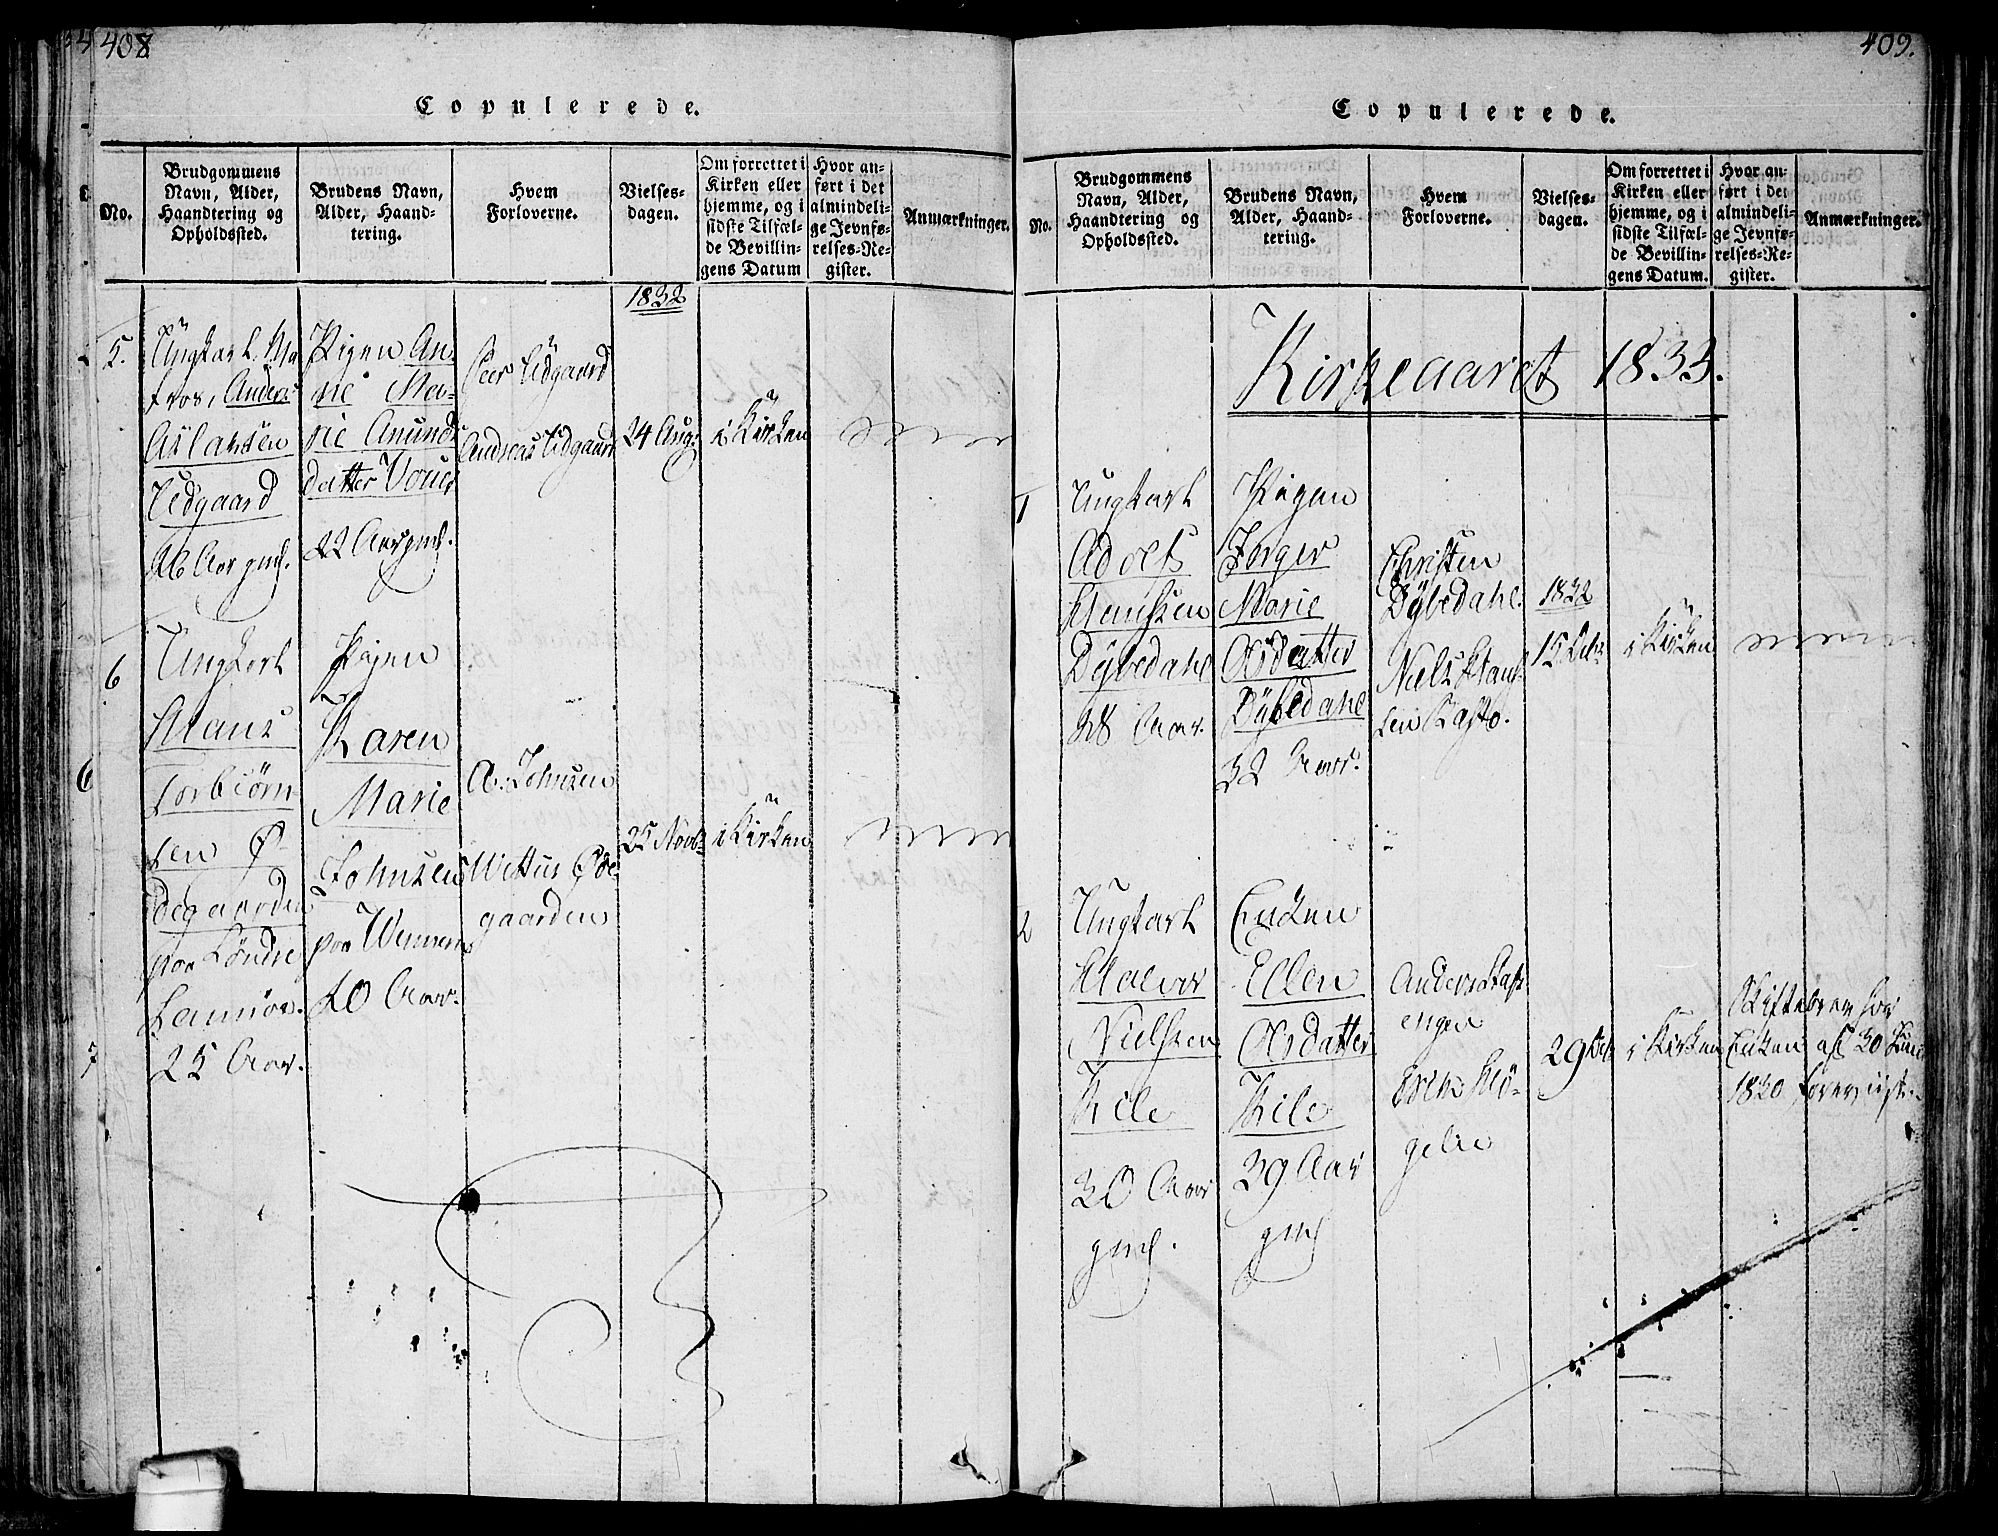 408
Copulerede.
No.
Brudgommens
Navn, Alder,
Haandtering og
Opholdssted.
Brudens Navn,
Alder, Haand-
tering.
Hvem
Forloverne.
Vielses-
dagen.
Om forrettet i
Kirken eller
hjemme, og i
sidste Tilfæl-
de Bevillin-
gens Datum
Hvor an-
ført i det
almindeli-
ge Jevnfø-
relses-Re-
gister.
Anmærkninger.
1832
5.
Ungkarl Ma
tros, Anders
Aslaksen
Udgaard
26 Aar gml.
Pigen An-
ne Ma-
rie Anunds
datter
22 Aar gml.
Peer Udgaard
Andreas Udgaard
24 Aug:
i Kirken
6
Ungkarl
Hans
Torbiørn
sen Ø
degaarden
paa Søndre
Sannøe.
25 Aar.
Pigen
Karen
Marie
Johnsen
paa
20 Aar.
A: Johnsen
Wittus Øde-
gaarden
25 Novb:
i Kirken
6
7
409.
Copulerede.
No.
Brudgommens
Navn, Alder,
Haandtering og
Opholdssted.
Brudens Navn,
Alder, Haand-
tering.
Hvem
Forloverne.
Vielses-
dagen.
Om forrettet i
Kirken eller
hjemme, og i
sidste Tilfæl-
de Bevillin-
gens Datum.
Hvor an-
ført i det
almindeli-
ge Jevnfø-
relses-Re-
gister.
Anmærkninger.
Kirkeaaret 1833.
1
Ungkarl
Adolf
Hansen
Dybedahl
28 Aar.
Pigen
Inger
Marie
Olsdatter
Dybedahl
32 Aar.
Christen
Dybedahl.
Niels Han-
sen Rastø.
1832
15
i Kirken
2
Ungkarl
Halvor
Nielsen
Kile
30 Aar
gml.
Enken
Ellen
Olsdatter
Kile
39 Aar
gml
Anders
engen
29
i Kirken
Skiftebrev for
Enken af 30
1830 foreviist.